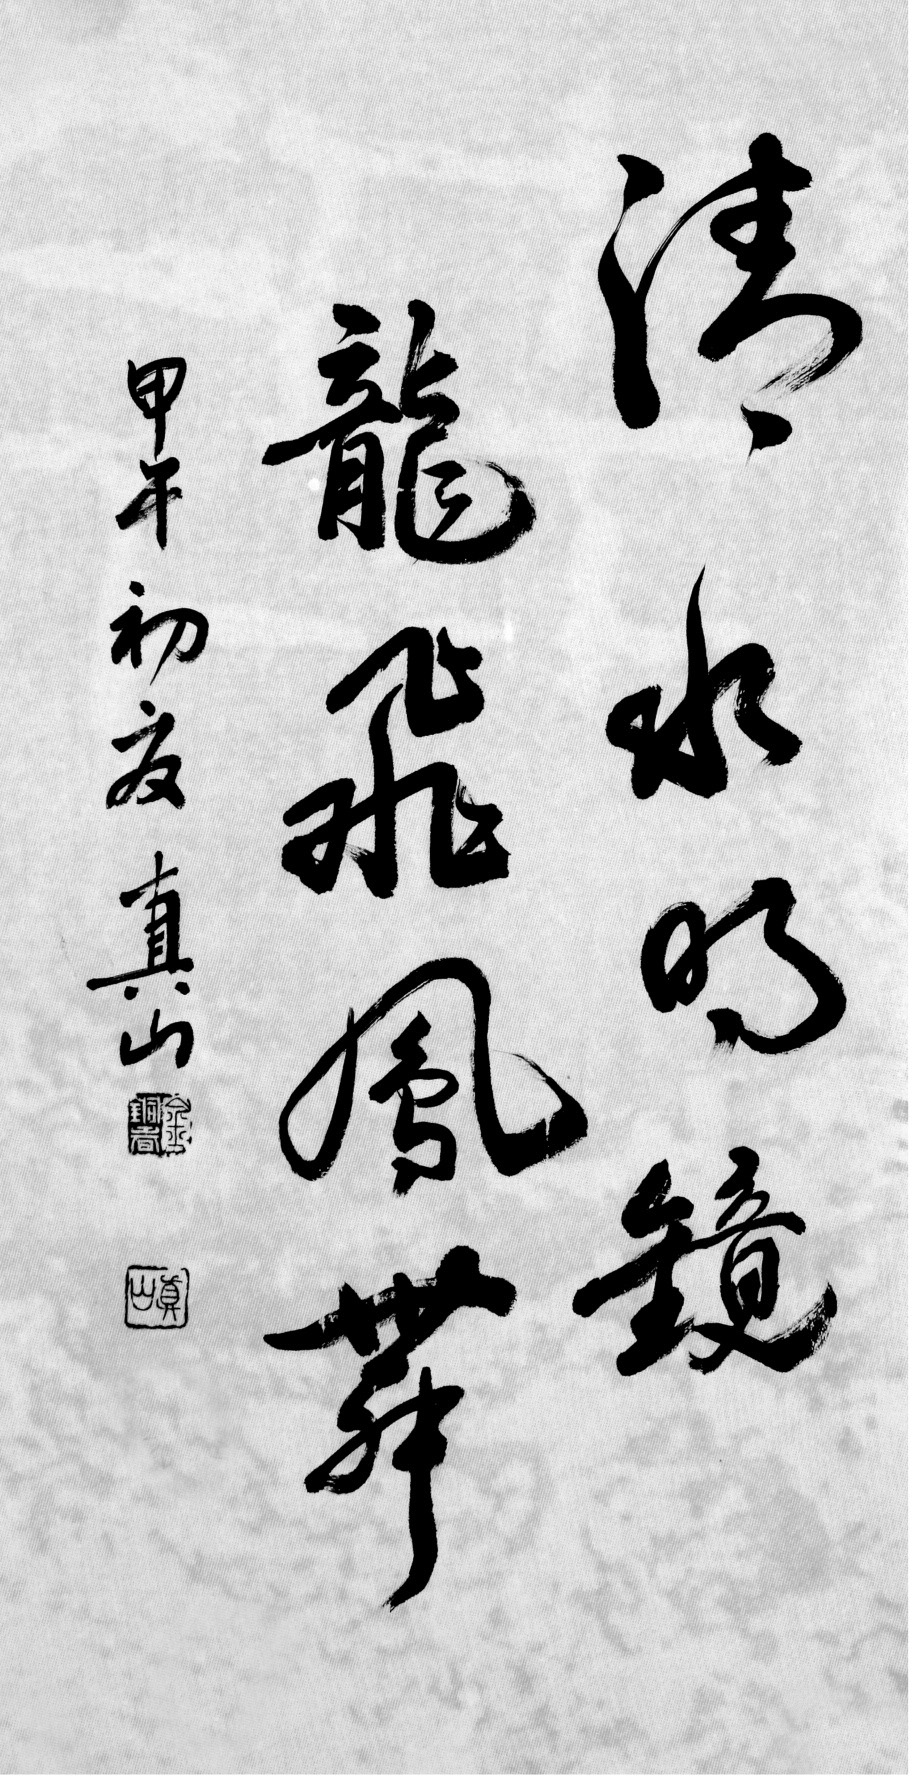 清水明鏡
龍飛鳳舞
甲午初夏 真山
眞山